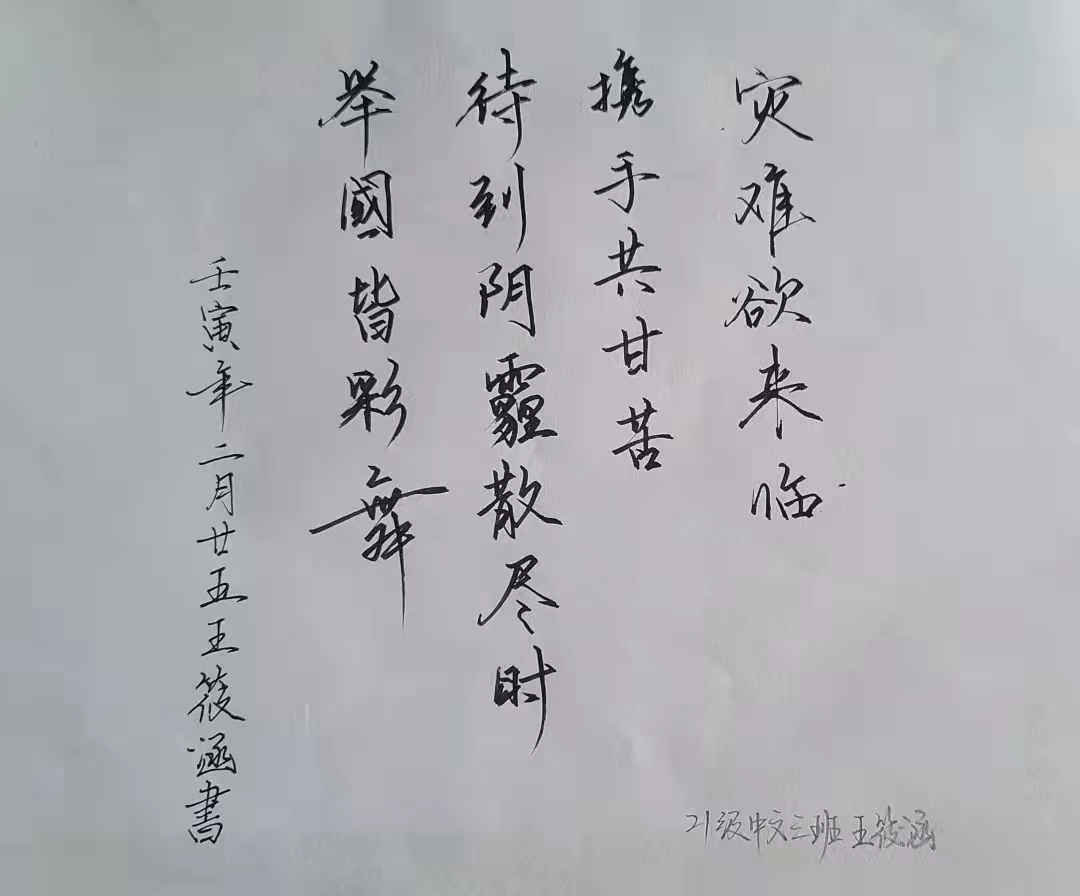 灾难欲来临
携手共甘苦
待到阴霾散尽时
举國皆彩舞
壬寅年二月廿五王筱涵書
21级中文三班王筱涵